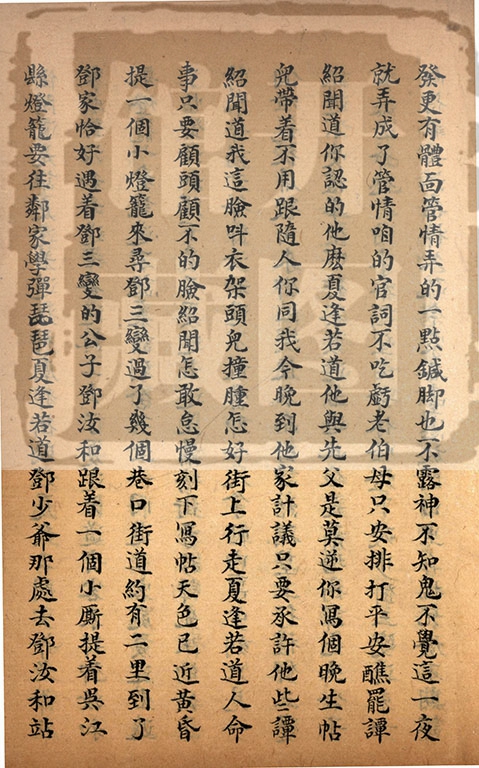 發更有體面管情弄的一點鍼脚也不露神不知鬼不覺這一夜
就弄成了管情咱的官詞不吃虧老伯母只安排打平安醮罷譚
紹聞道你認的他麽夏逢若道他與先父是莫逆你寫個晚生帖
兒帶着不用跟隨人你同我今晚到他家計議只要承許他些譚
紹聞道我這臉呌衣架頭兒撞腫怎好街上行走夏逢若道人命
事只要顧頭顧不的臉紹聞怎敢怠慢刻下寫帖天色已近黃昏
提一個小燈籠來尋鄧三變過了幾個巷口街道約有二里到了
鄧家恰好遇着鄧三變的公子鄧汝和跟着一個小厮提着吳江
縣燈籠要往鄰家學彈琵琶夏逢若道鄧少爺那處去鄧汝和站